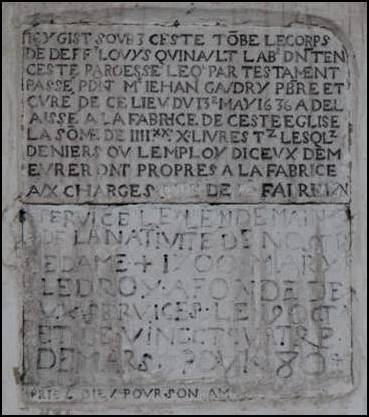 ICY GIST SOUBZ CESTE TŌBE LE CORPS
DE DEFFT LOUYS QVINAVLT LABR DNTEN
CESTE PAROESSE LEQL PAR TESTAMENT
PASSE PDT ME IEHAN GAVDRY PBRE ET
CVRE DE CE LIEV DV 13E MAY 1636 A DEL
AISSE A LA FABRICE DE CESTE EGLISE
LA SŌME DE IIIIXX X LIVRES TZ LESQLZ
DENIERS OV LEMPLOY DICEVX DEM
EVRERONT PROPRES A LA FABRICE
AVX CHARGES DE FAIRE VN
SERVICE LE LENDEMAIN
DE LA NATIVITE DE NOSTR
E DAME + 1700 MARY
LEDROY A FONDE DE
VX SERVICES LE 19 OCT
ET LE VINECT QVATRE
DE MARS POVR 80
PRIEZ DIEV POVR SON AM